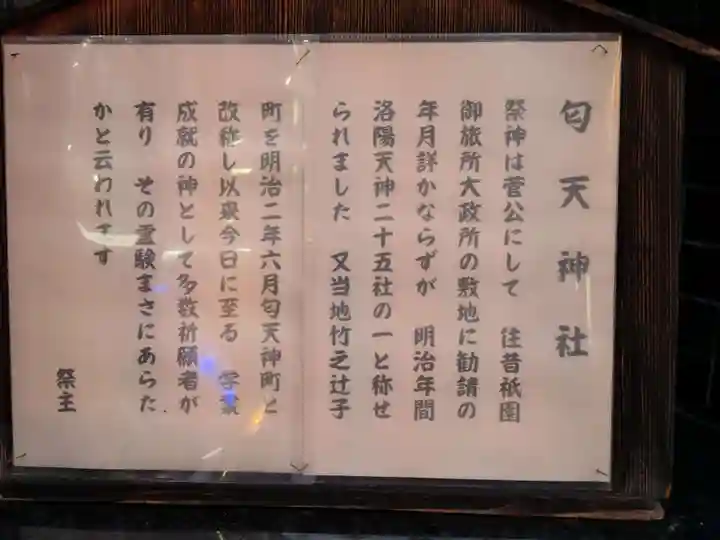 匂天神社
祭神は菅公にして　往昔祇園
御旅所大政所の敷地に勧請の
年月詳かならずが　明治年間
洛陽天神二十五社の一と称せ
られました　又当地竹之辻子
町を明治二年六月匂天神町と
改称し以来今日に至る　学業
成就の神として多数祈願者が
有り　その霊験まさにあらた
かと云われます
祭主